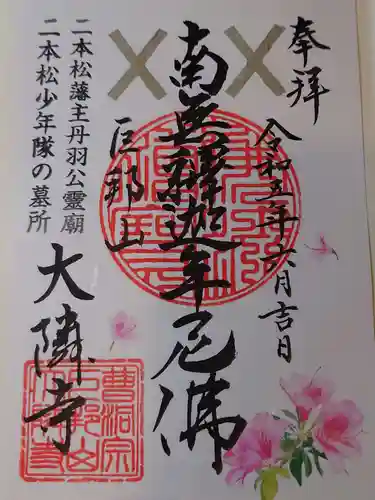 奉拝
令和五年六月吉日
南無釋迦牟尼佛
巨邦山
大隣寺
二本松藩主丹羽公靈廟
二本松少年隊の墓所
曹洞宗